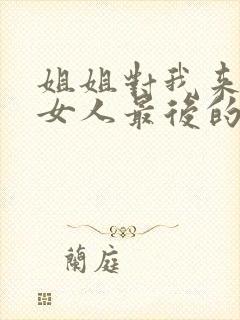 姐姐對我來
女人最後的
蘭庭